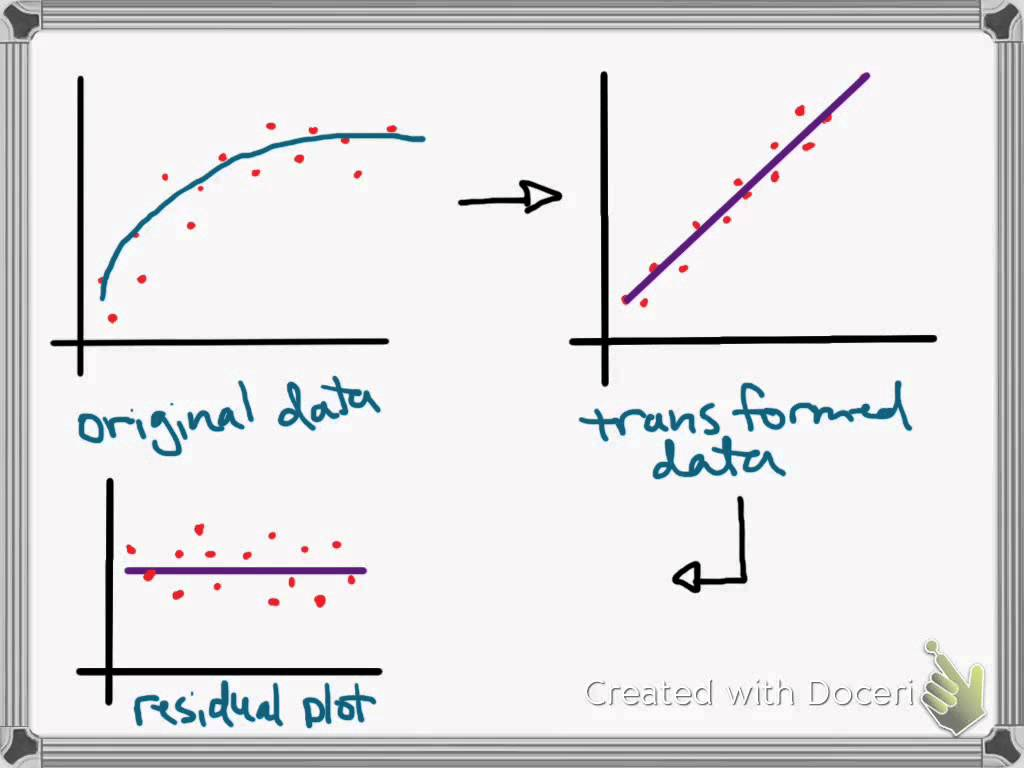 original data
transformed
data
residual plot
Created with Doceri